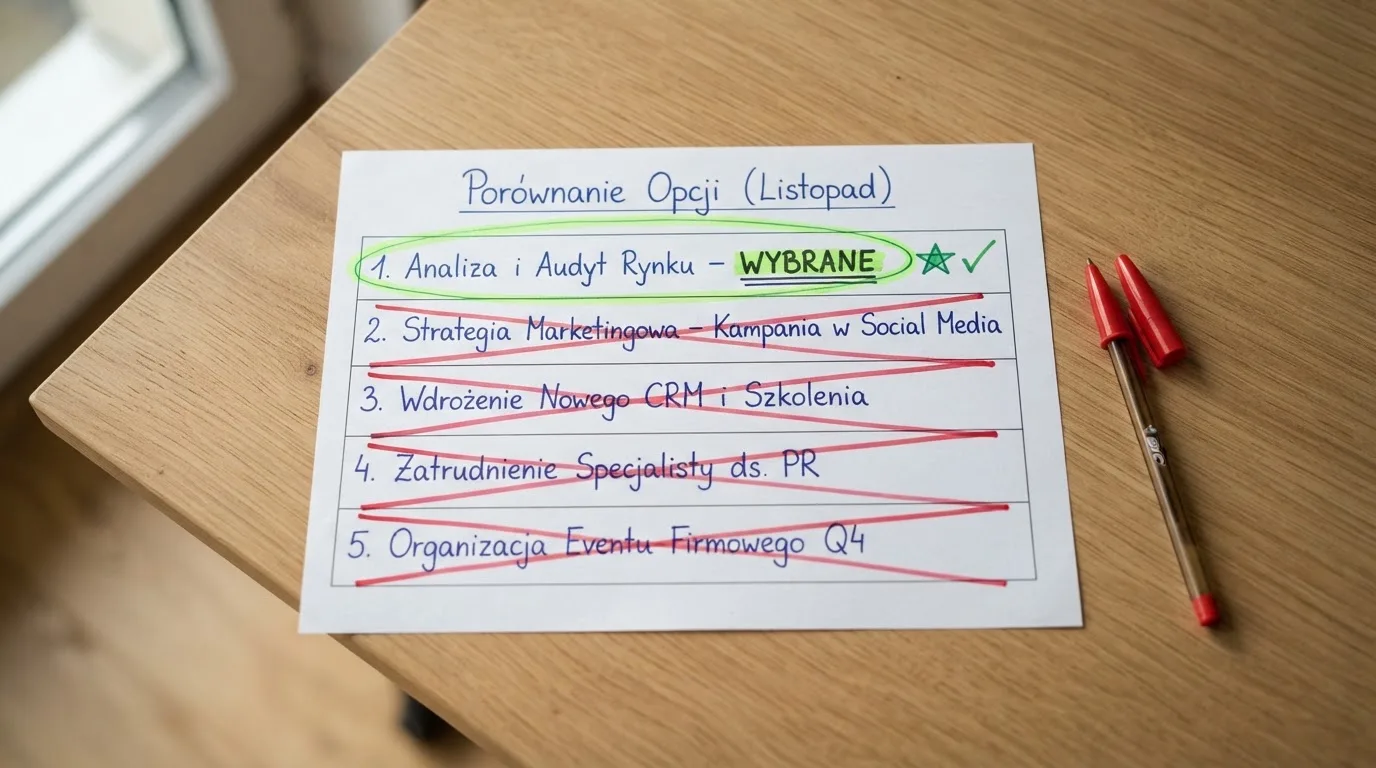 Porównanie Opcji (Listopad)
1. Analiza i Audyt Rynku – WYBRANE
2. Strategia Marketingowa – Kampania w Social Media
3. Wdrożenie Nowego CRM i Szkolenia
4. Zatrudnienie Specjalisty ds. PR
5. Organizacja Eventu Firmowego Q4